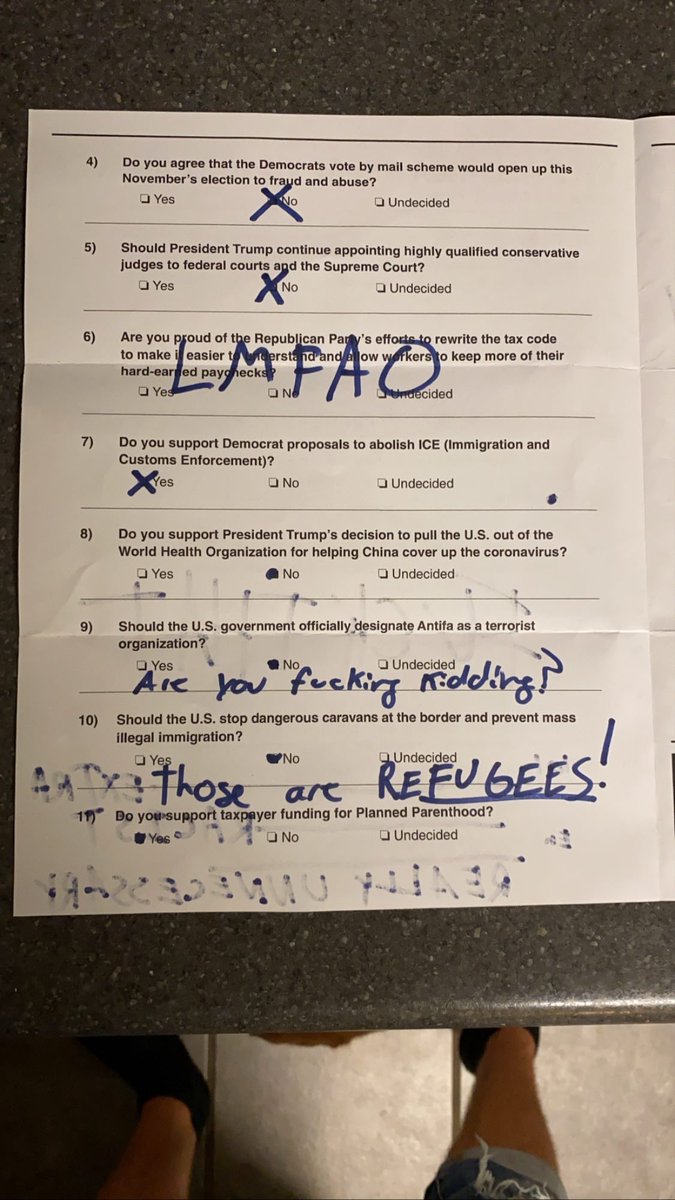 4) Do you agree that the Democrats vote by mail scheme would open up this
November's election to fraud and abuse?
Yes No Undecided
5) Should President Trump continue appointing highly qualified conservative
judges to federal courts and the Supreme Court?
Yes No Undecided
6) Are you proud of the Republican Party's efforts to rewrite the tax code
to make it easier to understand and allow workers to keep more of their
hard-earned paychecks?
LMFAO
Yes No Undecided
7) Do you support Democrat proposals to abolish ICE (Immigration and
Customs Enforcement)?
Yes No Undecided
8) Do you support President Trump's decision to pull the U.S. out of the
World Health Organization for helping China cover up the coronavirus?
Yes No Undecided
9) Should the U.S. government officially designate Antifa as a terrorist
organization?
Yes No Undecided
Are you fucking kidding?
10) Should the U.S. stop dangerous caravans at the border and prevent mass
illegal immigration?
Yes No Undecided
those are REFUGEES!
11) Do you support taxpayer funding for Planned Parenthood?
Yes No Undecided
REALLY UNNECESSARY